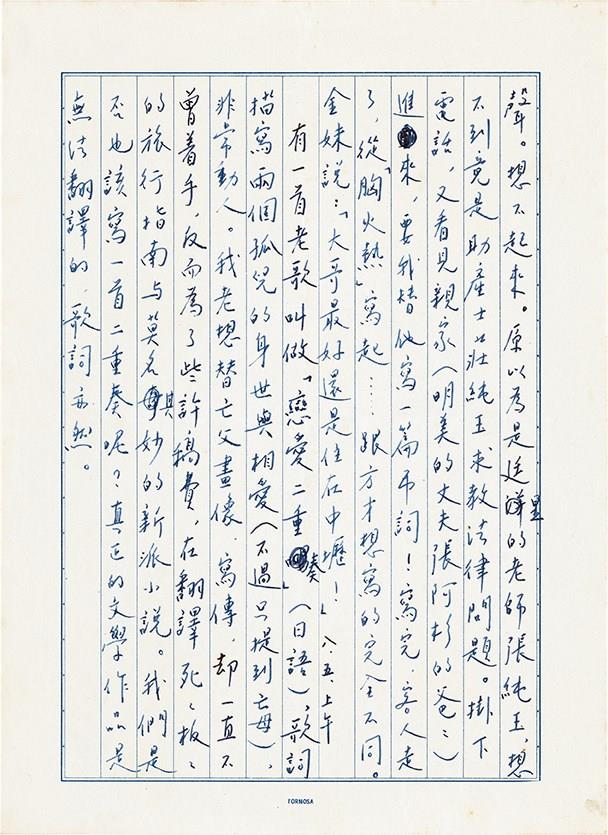 聲。想不起來。原以為是廷星的老師張純玉,想
不到竟是助產士莊純玉求教法律問題。掛下
電話,又看見親家(明美的丈夫張阿杉的爸〻)
進來,要我替他寫一篇弔詞!寫完,客人走
了,從「胸火熱」寫起……跟方才想寫的完全不同。
金妹說:「大哥最好還是住在中壢!」八.五.上午
有一首老歌叫做「戀愛二重奏」(日語),歌詞
描寫兩個孤兒的身世與相愛(不過只提到亡母),
非常動人。我老想替亡父畫像、寫傳,却一直不
曾着手,反而為了些許稿費,在翻譯死〻板〻
的旅行指南與莫名其妙的新派小說。我們是
否也該寫一首二重奏呢?真正的文學作品是
無法翻譯的,歌詞亦然。
FORMOSA